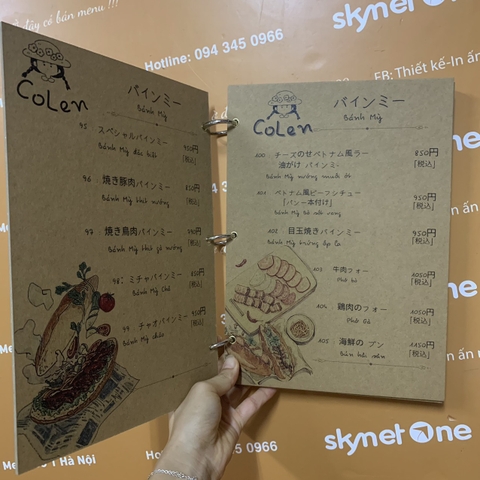 đây có bán menu !!!
Hotline: 094 345 0966
skynet
FB: Thiết kế-In ấn
CoLen
バインミー
Bánh Mỳ
95 スペシャルバインミー
Bánh Mỳ đặc biệt
950円
「税込」
96 焼き豚肉バインミー
Bánh Mỳ thịt nướng
「税込」
97 焼き鳥肉バインミー
Bánh Mỳ thịt gà nướng
「税込」
98: ミチャバインミー
Bánh Mỳ Chả
「税込」
99. チャオバインミー
Bánh Mỳ chảo
「税込」
CoLen
バインミー
Bánh Mỳ
100 チーズのせベトナム風ラー
油がけ バインミー
Bánh Mỳ nướng muối ớt
850円
「税込」
101 ベトナム風ビーフシチュー
「バンー本付け」
Bánh Mỳ Bò sốt vang
950円
「税込」
102 目玉焼きバインミー
Bánh Mỳ trứng ốp la
950円
「税込」
103 牛肉フォー
Phở bò
1050円
「税込」
104 鶏肉のフォー
Phở Gà
1050円
「税込」
105 海鮮の ブン
Bún hải sản
1150円
「税込」
345 0966
skynet one
1 Hà Nội